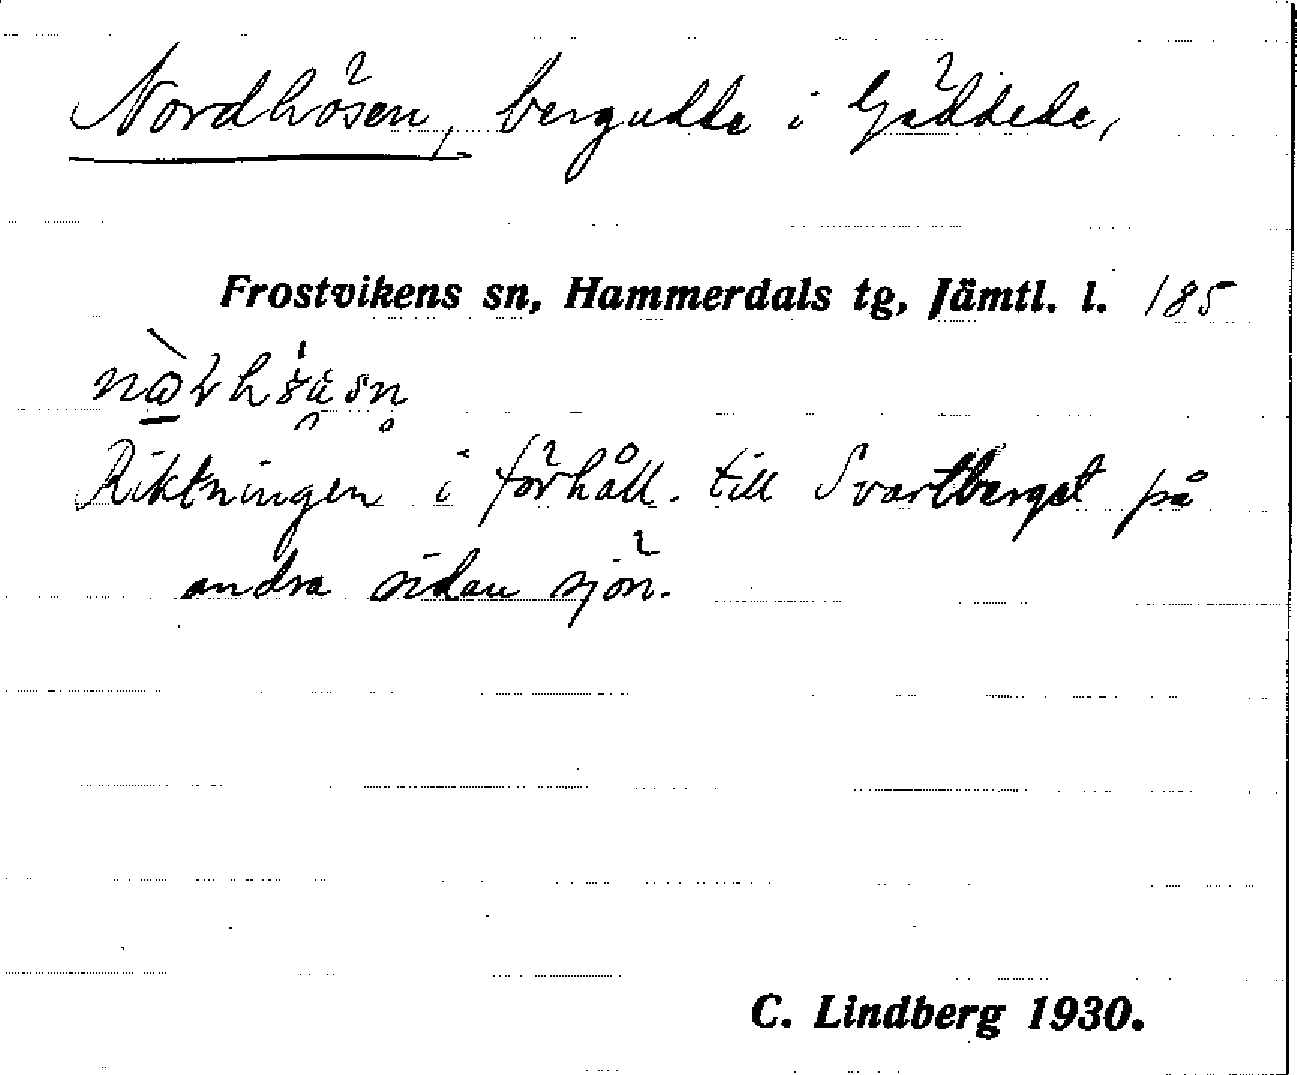 Nordhösen, bergudde i Gäddede,
Frostvikens sn, Hammerdals tg, Jämtl. l. 185
Riktningen i förhåll. till Svartberget på
andra sidan sjön.
C. Lindberg 1930.